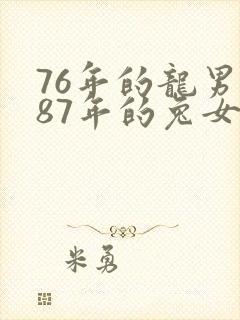 76年的龍男
87年的兔女
米勇